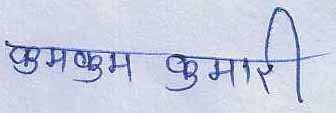 कुमकुम कुमारी